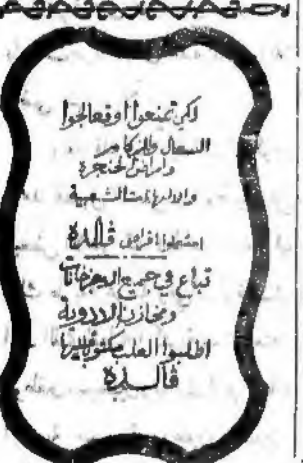 لكي تمنعوا وتعالجوا
السعال والزكام
وامراض الحنجرة
والالتهابات الشعبية
استعملوا اقراص ڤالدة
تباع في جميع الاجزخانات
ومخازن الادوية
اطلبوا العلب مكتوب عليها
ڤالدة